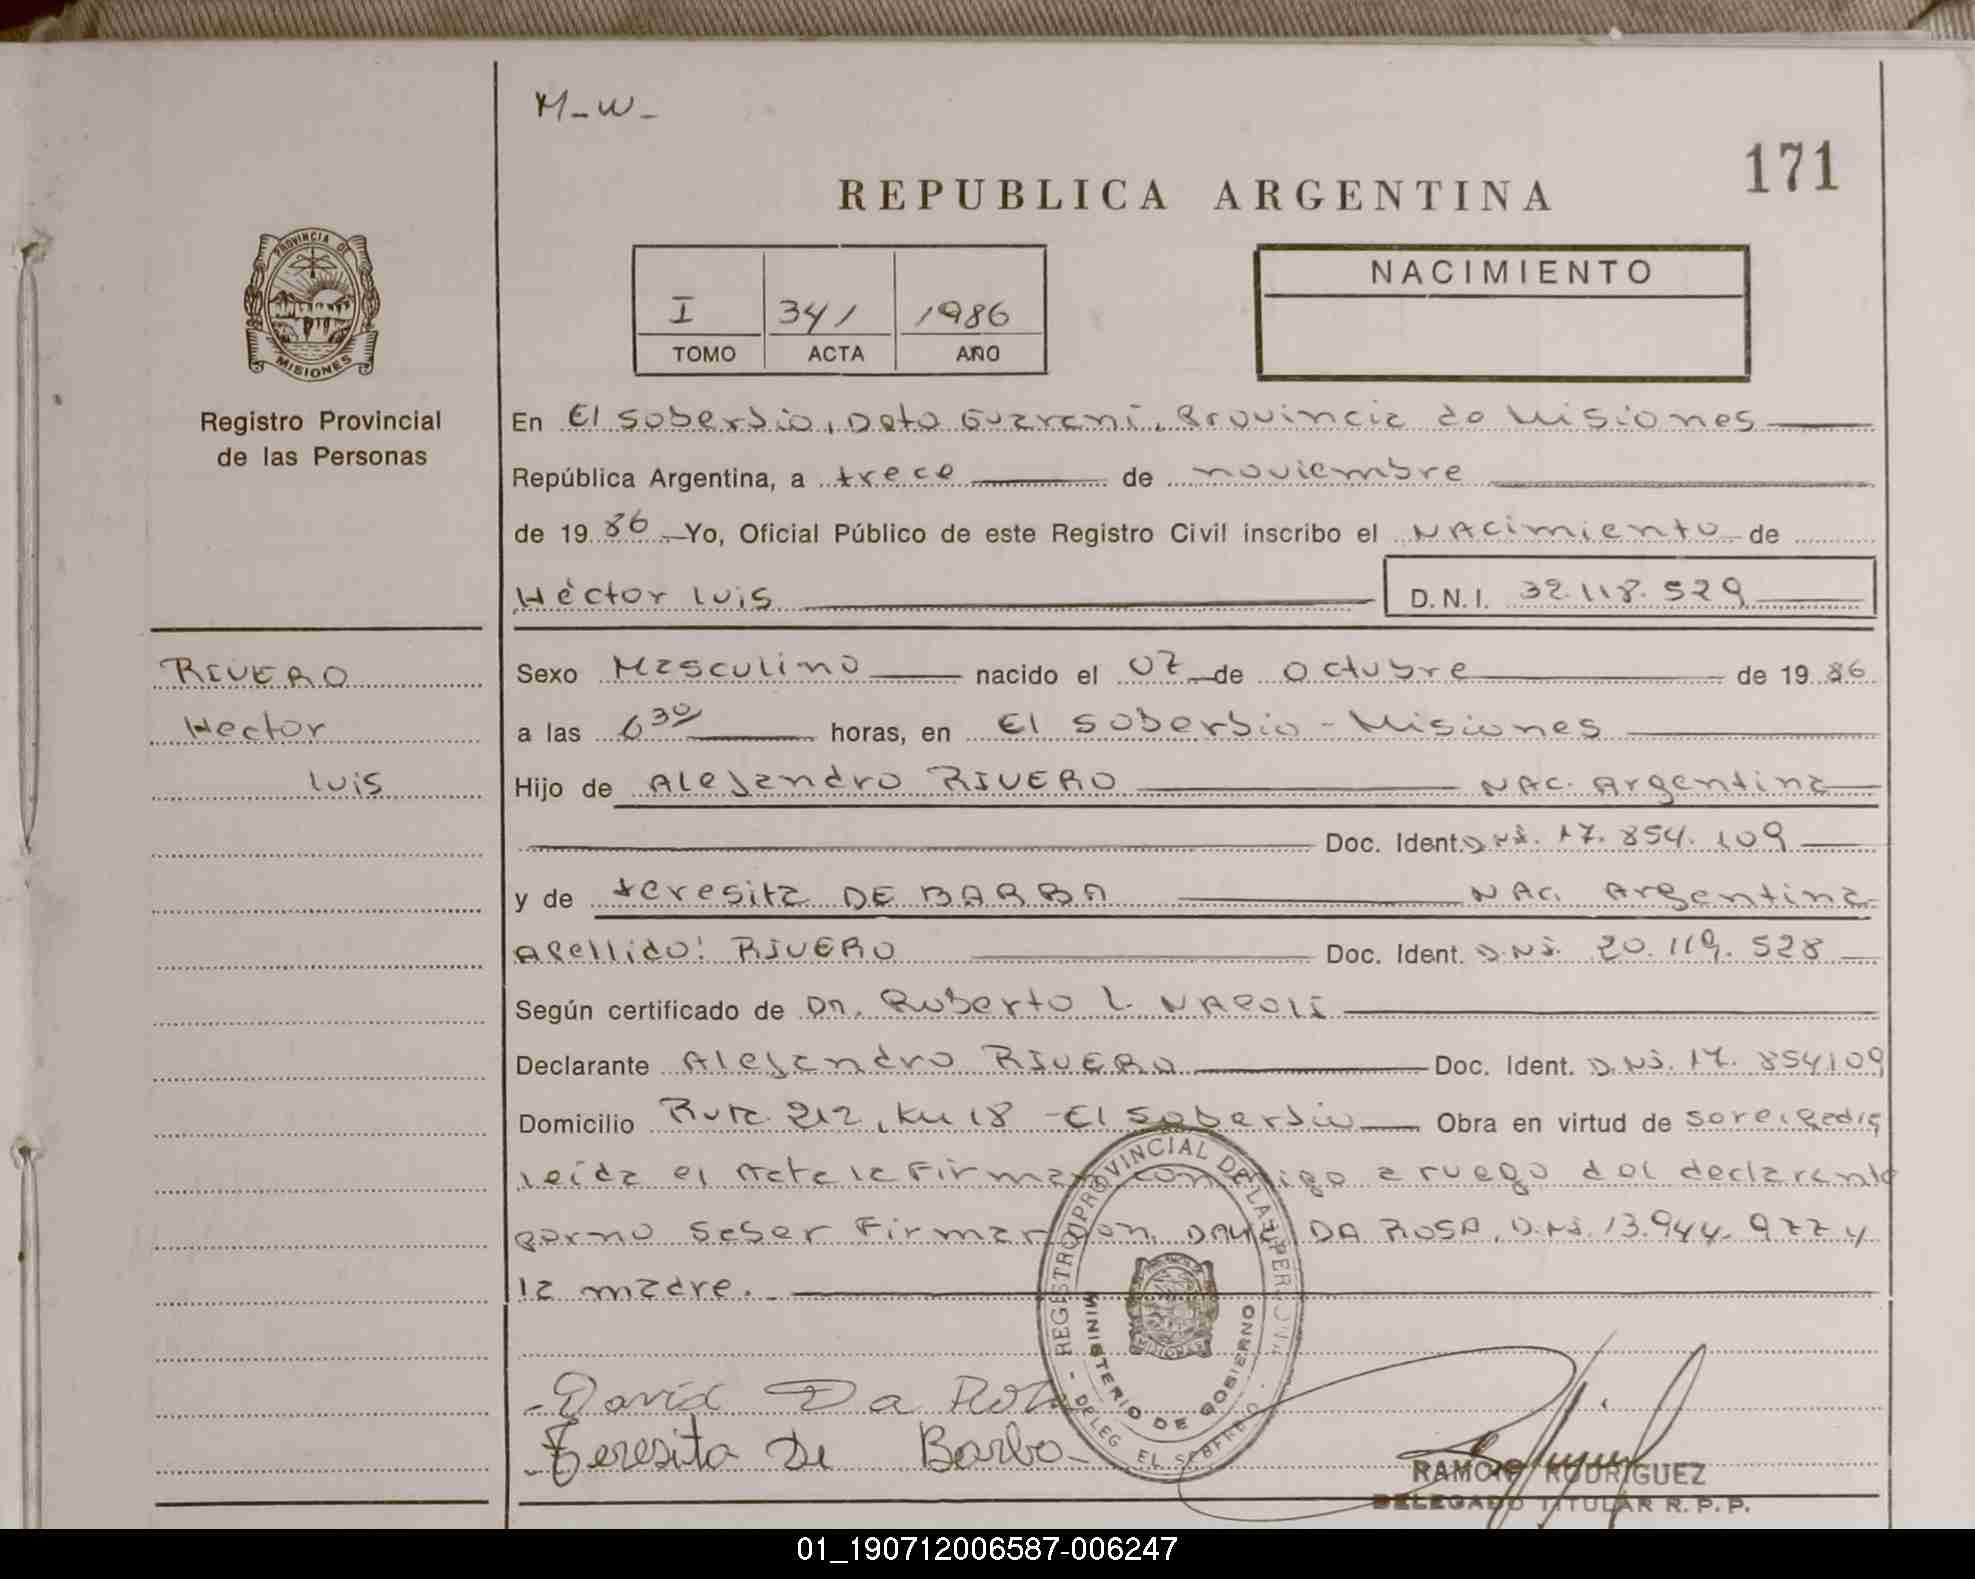 M-W-
171
REPUBLICA ARGENTINA
PROVINCIA DE
MISIONES
I 341 1986
TOMO ACTA AÑO
NACIMIENTO
Registro Provincial
de las Personas
En El Soberbio, Dpto Guarani, Provincia de Misiones
República Argentina, a trece de noviembre
de 1986 Yo, Oficial Público de este Registro Civil inscribo el NAcimiento de
Hèctor Luis D.N.I. 32.118.529
RIVERO
Hector
Luis
Sexo Masculino nacido el 07 de Octubre de 1986
a las 6 30 horas, en El Soberbio - Misiones
Hijo de Alejandro RIVERO NAC. Argentina
Doc. Ident. D.N.I. 17.854.109
y de teresita DE BARBA NAC. Argentina
Apellido: RIVERO Doc. Ident. D.N.I. 20.119.528
Según certificado de Dr. Roberto L. NAPOLI
Declarante Alejandro RIVERO Doc. Ident. D.N.I. 17.854109
Domicilio Ruta 212, Km 18 - El Soberbio Obra en virtud de
leída el Acta la Firman conmigo a ruego del declarante
por no saber Firmar Don DAVID DA ROSA, D.N.I. 13.944.977 y
la madre.
REGISTRO PROVINCIAL DE LAS PERSONAS
MINISTERIO DE GOBIERNO
DELEG EL SOBERBIO
David Da Rosa
Teresita De Barba
RAMON RODRIGUEZ
DELEGADO TITULAR R.P.P.
01_190712006587-006247